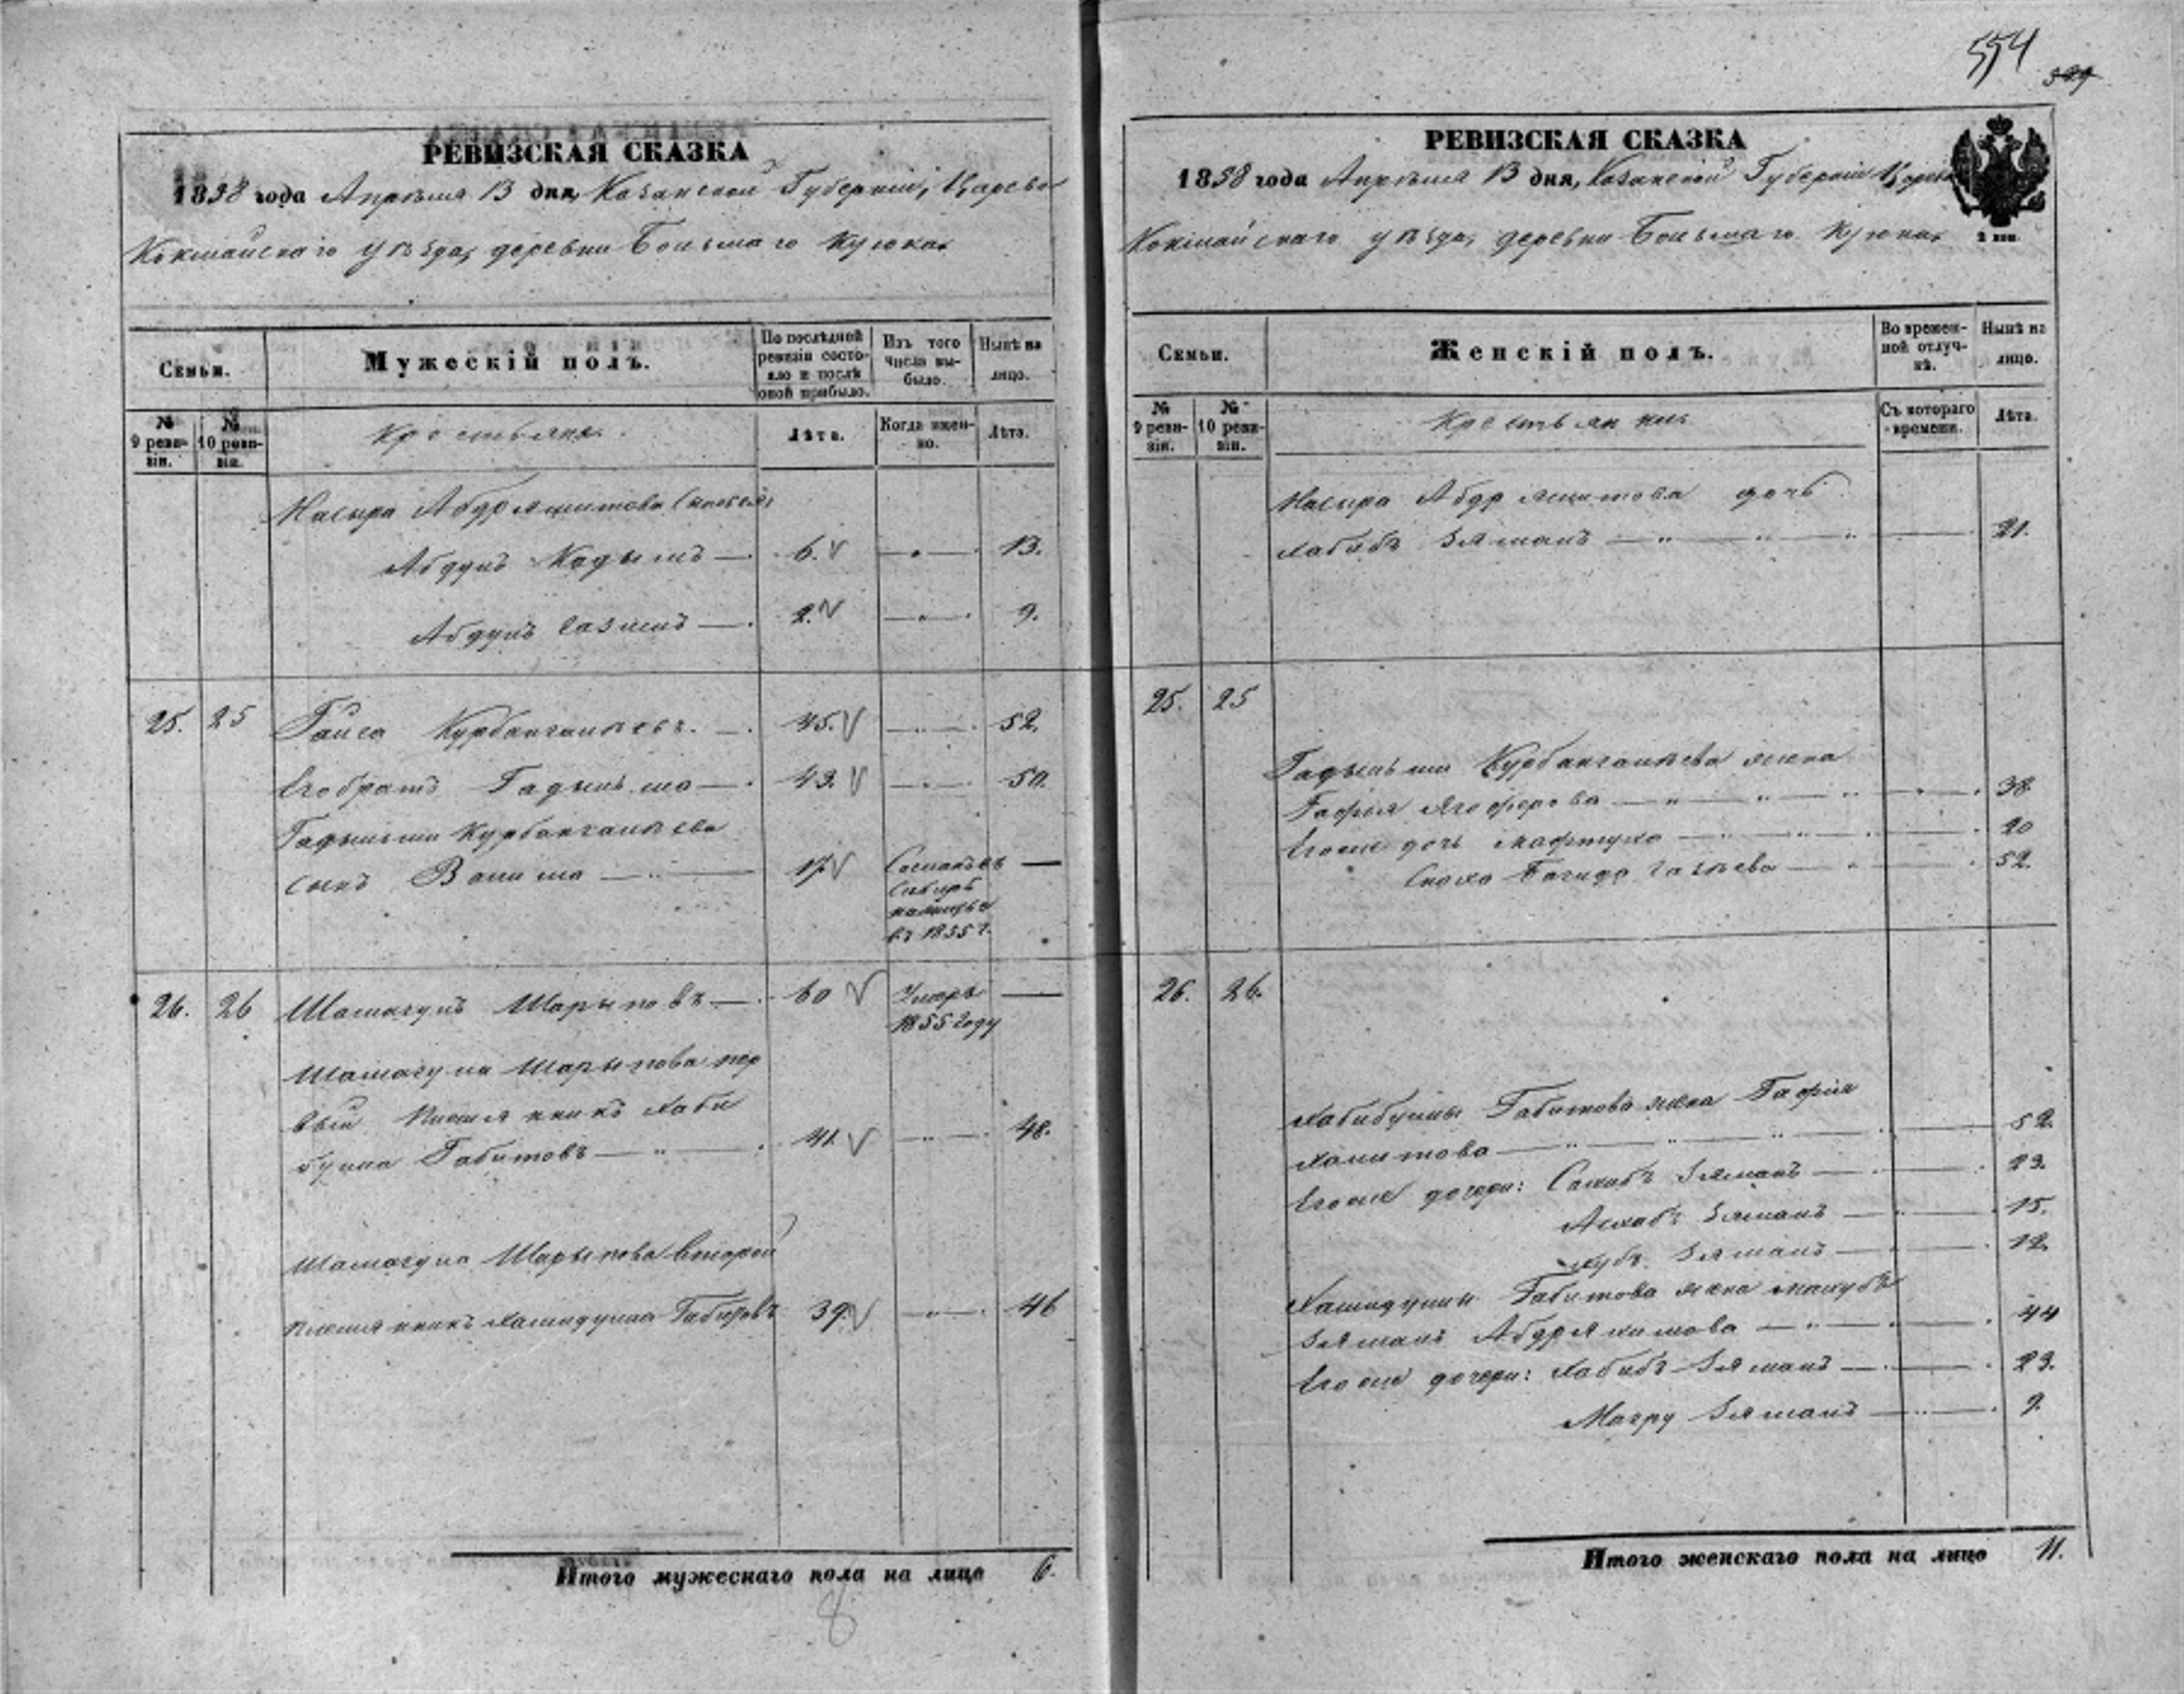 РЕВИЗСКАЯ СКАЗКА
1858 года Апрѣля 13 дня, Казанской Губерніи, Царево
Кокшайскаго уѣзда, деревни Большаго Кулюка
Семьи.
Мужескій полъ.
По послѣдней ревизіи состояло и послѣ оной прибыло.
Изъ того числа выбыло.
Нынѣ на лицо.
№ 9 ревизіи.
№ 10 ревизіи.
Крестьяне.
Лѣта.
Когда именно.
Лѣта.
Насыра Абдряшитова сыновья
Абдулъ Кадымъ 6. 13.
Абдулъ Казымъ 2. 9.
25. 25 Гайса Курбангалѣевъ. 45. 52.
Его братъ Гадыльша 43. 50.
Гадыльши Курбангалѣева
сынъ Валиша 17. Сосланъ въ
Сибирь
въ 1855 г.
26. 26 Шамагулъ Шарыповъ 60 Умеръ
1855 году
Шамагула Шарыпова пер
вый племянникъ Хаби
булла Габитовъ 41. 48.
Шамагула Шарыпова второй
племянникъ Хамидулла Габитовъ 39. 46
Итого мужескаго пола на лицо 6.
8
554
329
РЕВИЗСКАЯ СКАЗКА
1858 года Апрѣля 13 дня, Казанской Губерніи Царево
Кокшайскаго уѣзда, деревни Большаго Кулюка
2 коп.
Семьи.
Женскій полъ.
Во временной отлучкѣ.
Нынѣ на лицо.
№ 9 ревизіи.
№ 10 ревизіи.
Крестьянки
Съ котораго времени.
Лѣта.
Насыра Абдряшитова дочь
Хабибъ Зямалъ 21.
25. 25
Гадыльши Курбангалѣева жена
Гафія Ягоферова 38
Его же дочь Мафтуха 20
Сноха Багида Галѣева 52.
26. 26.
Хабибуллы Габитова жена Гафія
Халитова 52.
Его же дочери: Сахибъ Зямалъ 23.
Асхабъ Зямалъ 15.
Хубъ Зямалъ 12
Хамидуллы Габитова жена Махубъ
Зямалъ Абдряхимова 44
Его же дочери: Хабибъ Зямалъ 23.
Магру Зямалъ 9.
Итого женскаго пола на лицо 11.